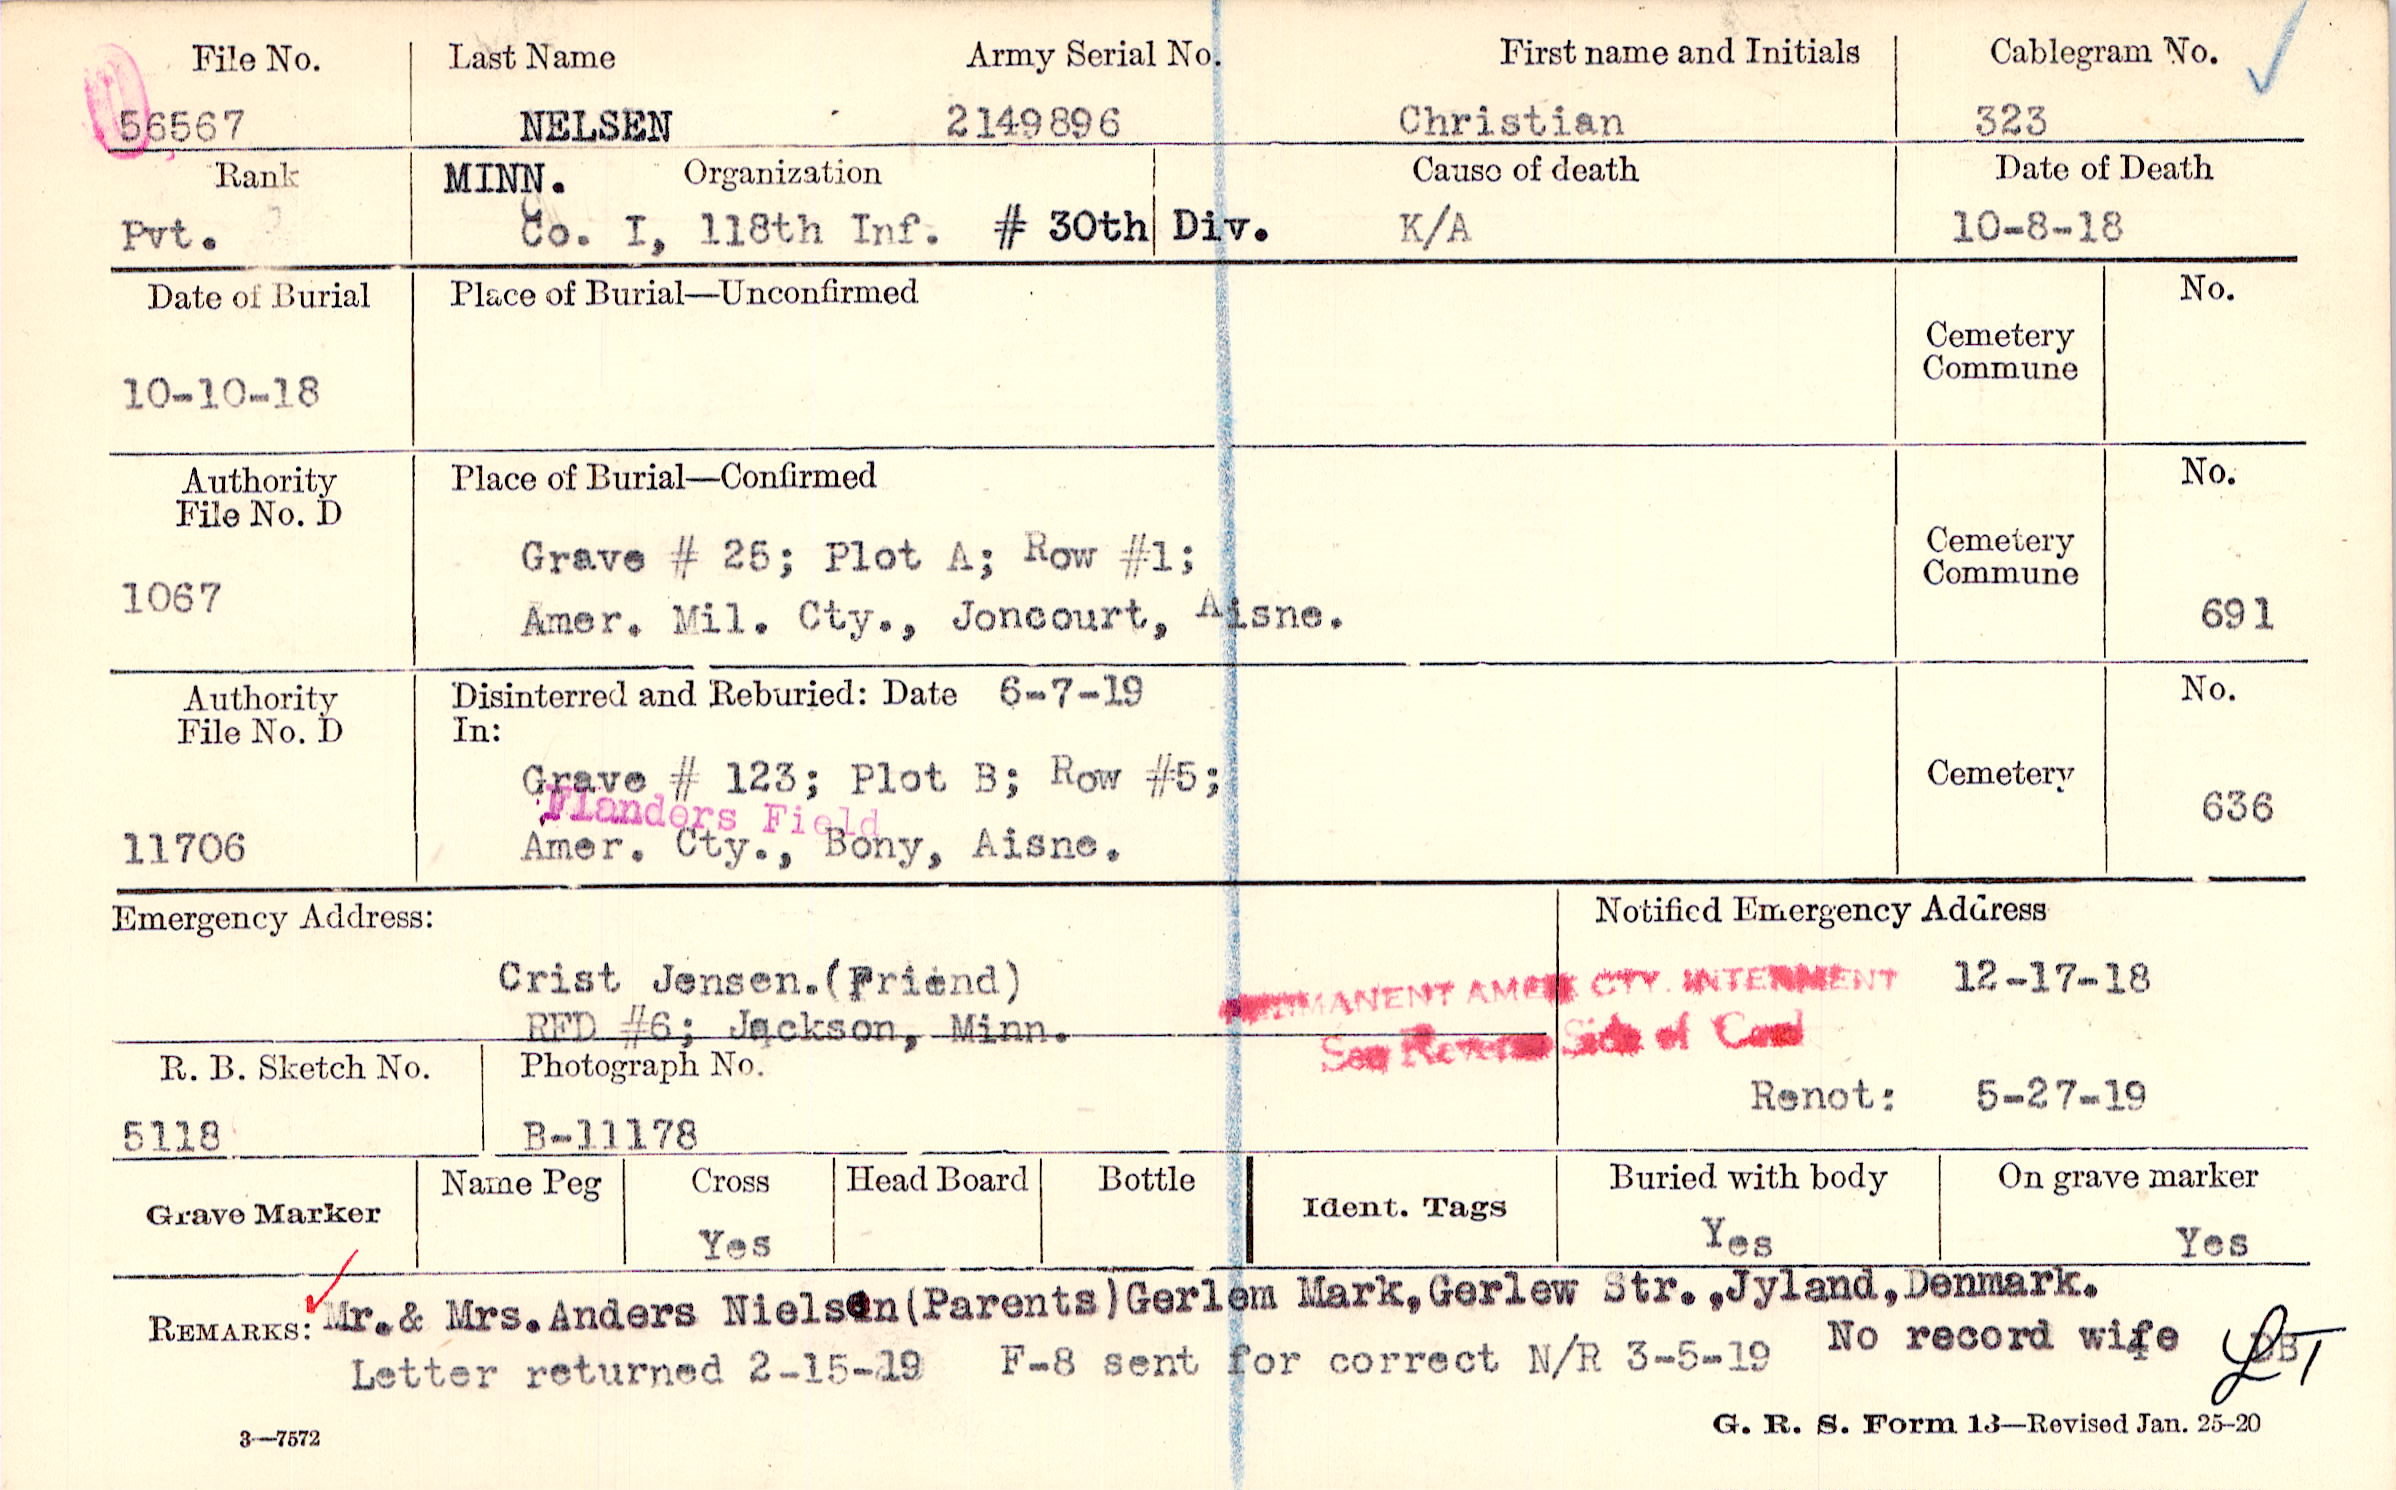 File No. Last Name Army Serial No. First name and Initials Cablegram No.
56567 NELSEN 2149896 Christian 323
Rank MINN. Organization Cause of death Date of Death
Pvt. Co. I, 118th Inf. # 30th Div. K/A 10-8-18
Date of Burial Place of Burial—Unconfirmed No.
Cemetery
Commune
10-10-18
Authority Place of Burial—Confirmed No.
File No. D
Grave # 25; Plot A; Row #1; Cemetery
Commune
1067
Amer. Mil. Cty., Joncourt, Aisne. 691
Authority Disinterred and Reburied: Date 6-7-19 No.
File No. D In:
Grave # 123; Plot B; Row #5; Cemetery
Flanders Field 636
11706 Amer. Cty., Bony, Aisne.
Emergency Address: Notified Emergency Address
Crist Jensen.(Friend) 12-17-18
PERMANENT AMER. CTY. INTERMENT
RFD #6; Jackson, Minn.
See Reverse Side of Card
R. B. Sketch No. Photograph No.
Renot: 5-27-19
5118 B-11178
Grave Marker Name Peg Cross Head Board Bottle Ident. Tags Buried with body On grave marker
Yes Yes Yes
REMARKS: Mr.& Mrs.Anders Nielsen(Parents)Gerlem Mark,Gerlew Str.,Jyland,Denmark.
No record wife
Letter returned 2-15-19 F-8 sent for correct N/R 3-5-19
3—7572 G. R. S. Form 13—Revised Jan. 25-20